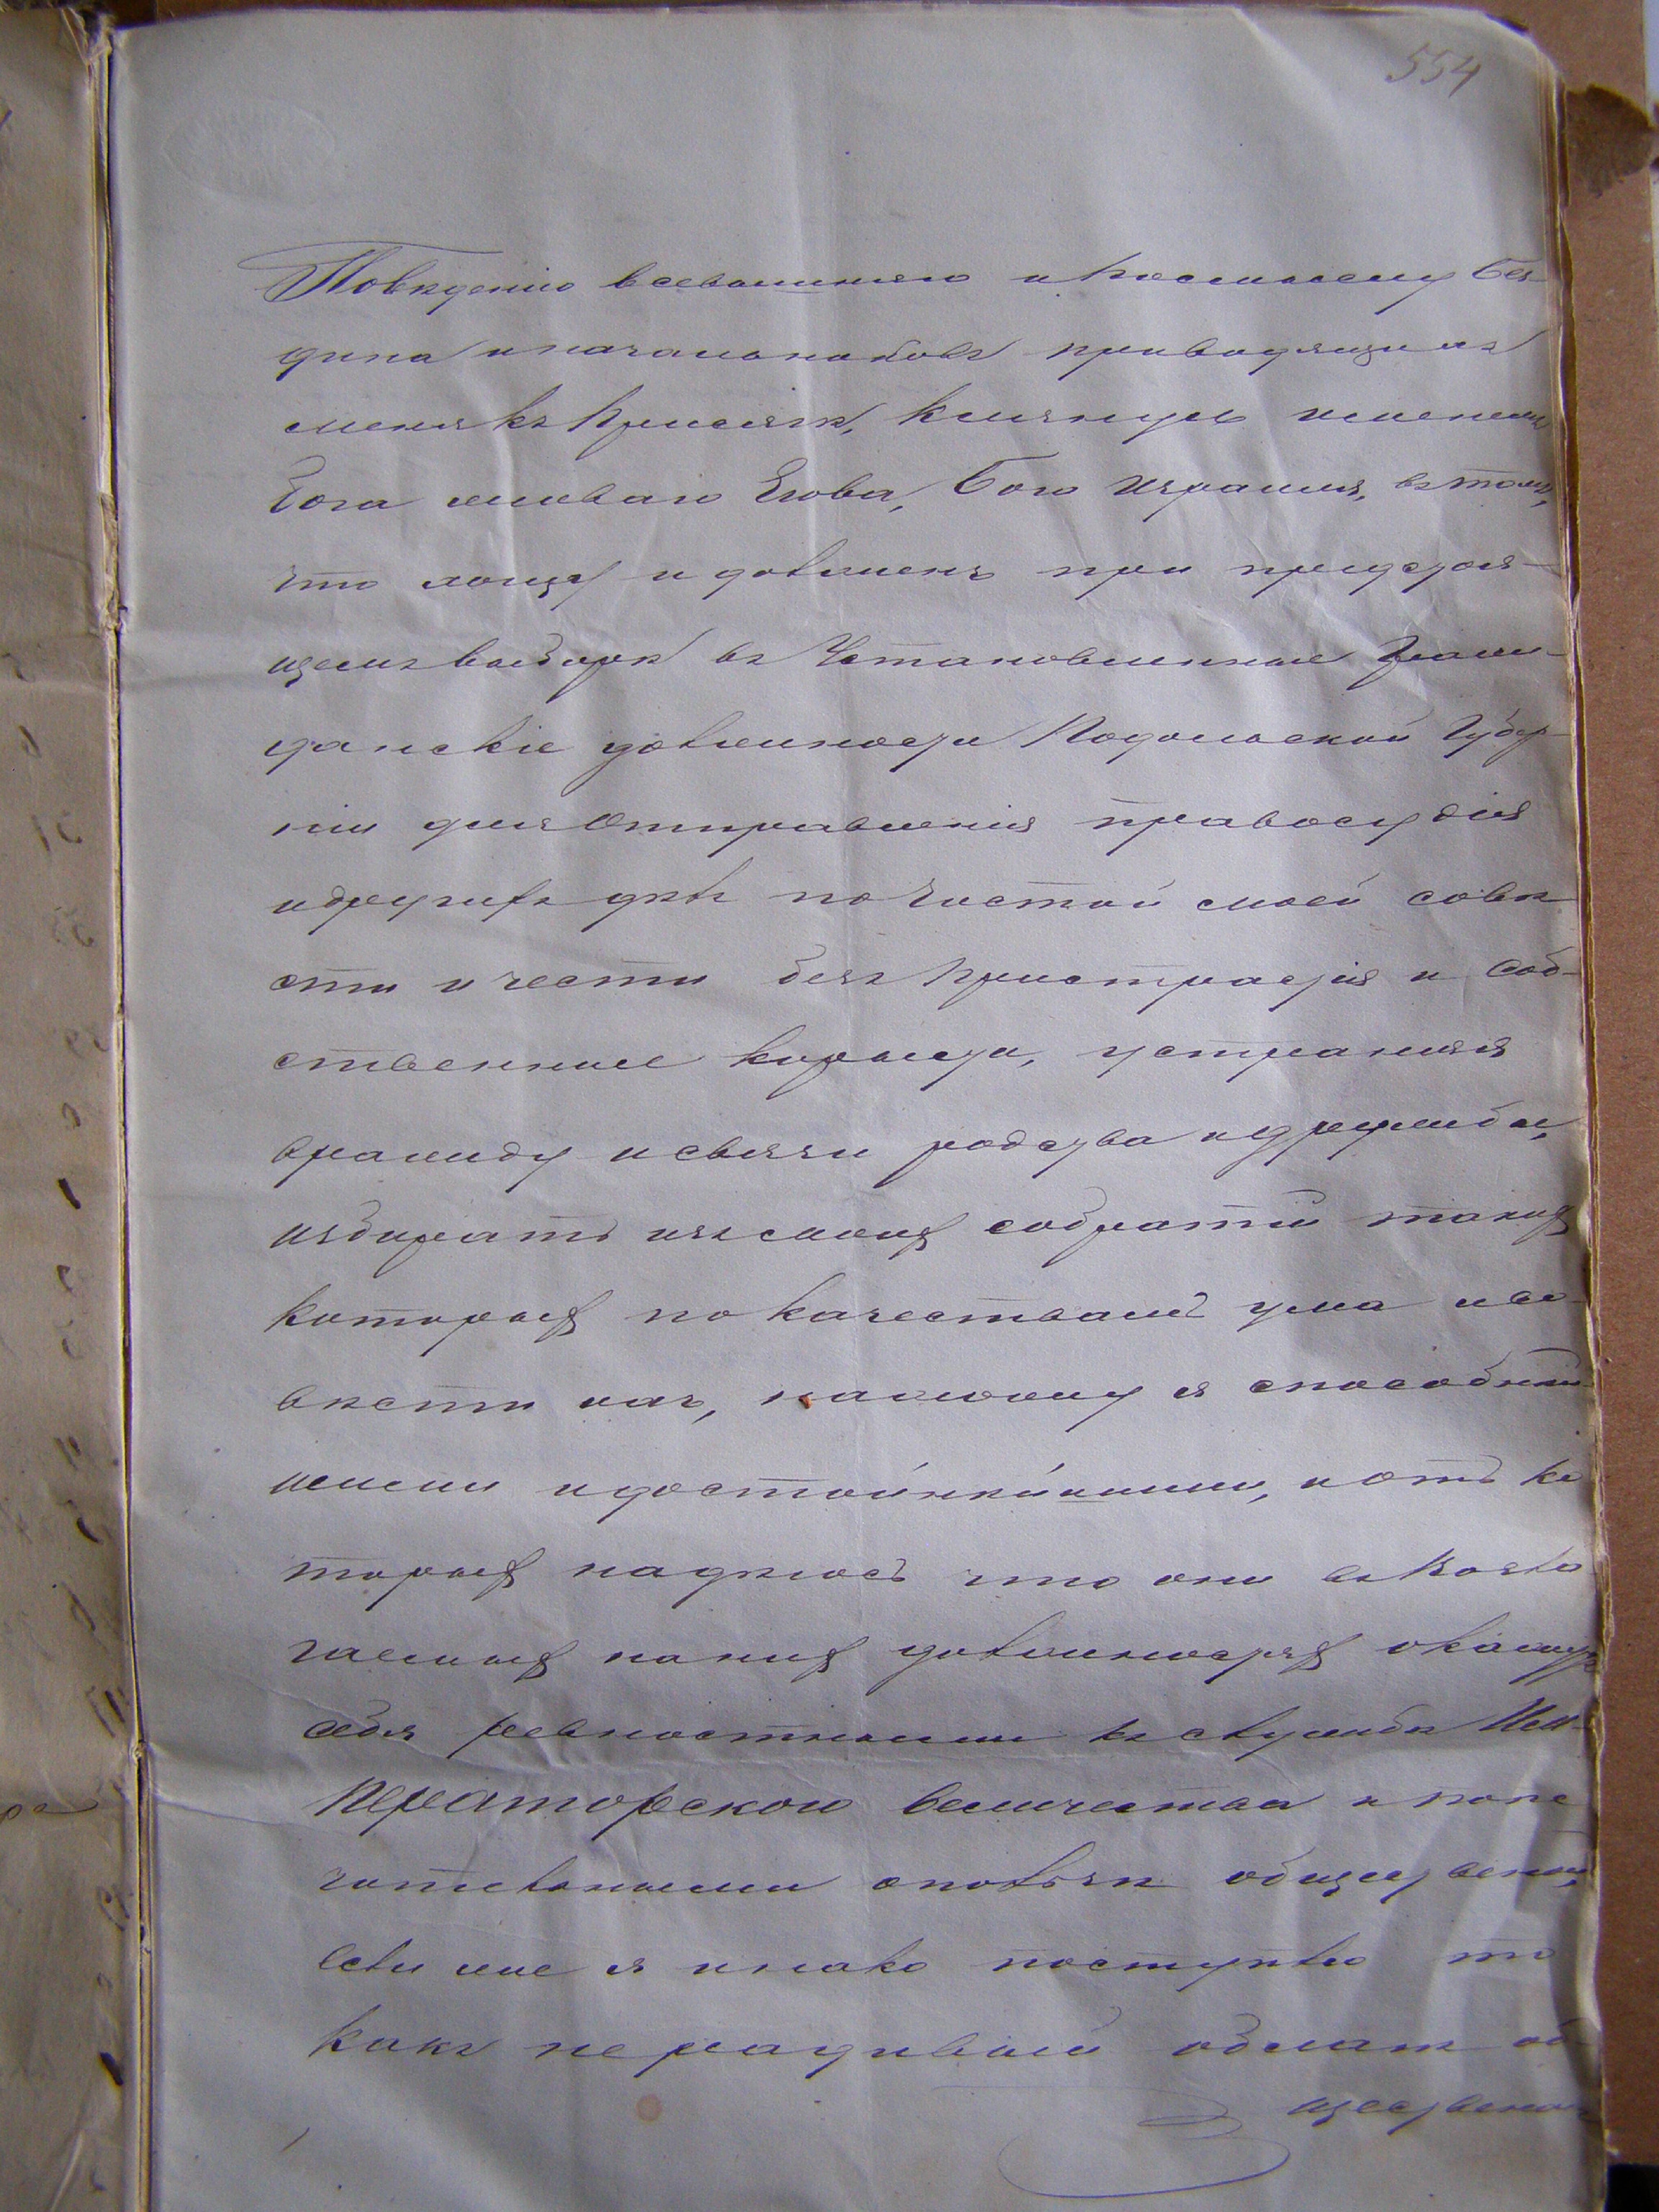 554
Повѣденію всевышняго и посылаему Без-
дина и начальниковъ приводящихъ
меня къ присягѣ, клянусь именемъ
Бога живаго Егова, Бога Израиля, въ томъ,
что хощу и долженъ при предстоя-
щемъ выборѣ въ Установленные Граж-
данскіе должности Подольской Губер-
ніи для отправленія правосудія
и другихъ дѣлъ по чистой моей совѣ-
сти и чести безъ пристрастія и Соб-
ственные корысти, устраняя
вражиду и связи родства и дружибы,
избирать изъ моихъ собратій такихъ
которыхъ по качествамъ ума и со-
вѣсти ихъ, нахожу я способнѣй-
шими и достойнѣйшими, и отъ ко
торыхъ надѣюсь что они въ возла
гаемыхъ на нихъ должностяхъ окажутъ
себя ревностными къ службѣ Им-
ператорского величества и попе
чительными о пользѣ общественной,
если же я инако поступлю то
какъ нерадивый о благѣ об-
щественномъ